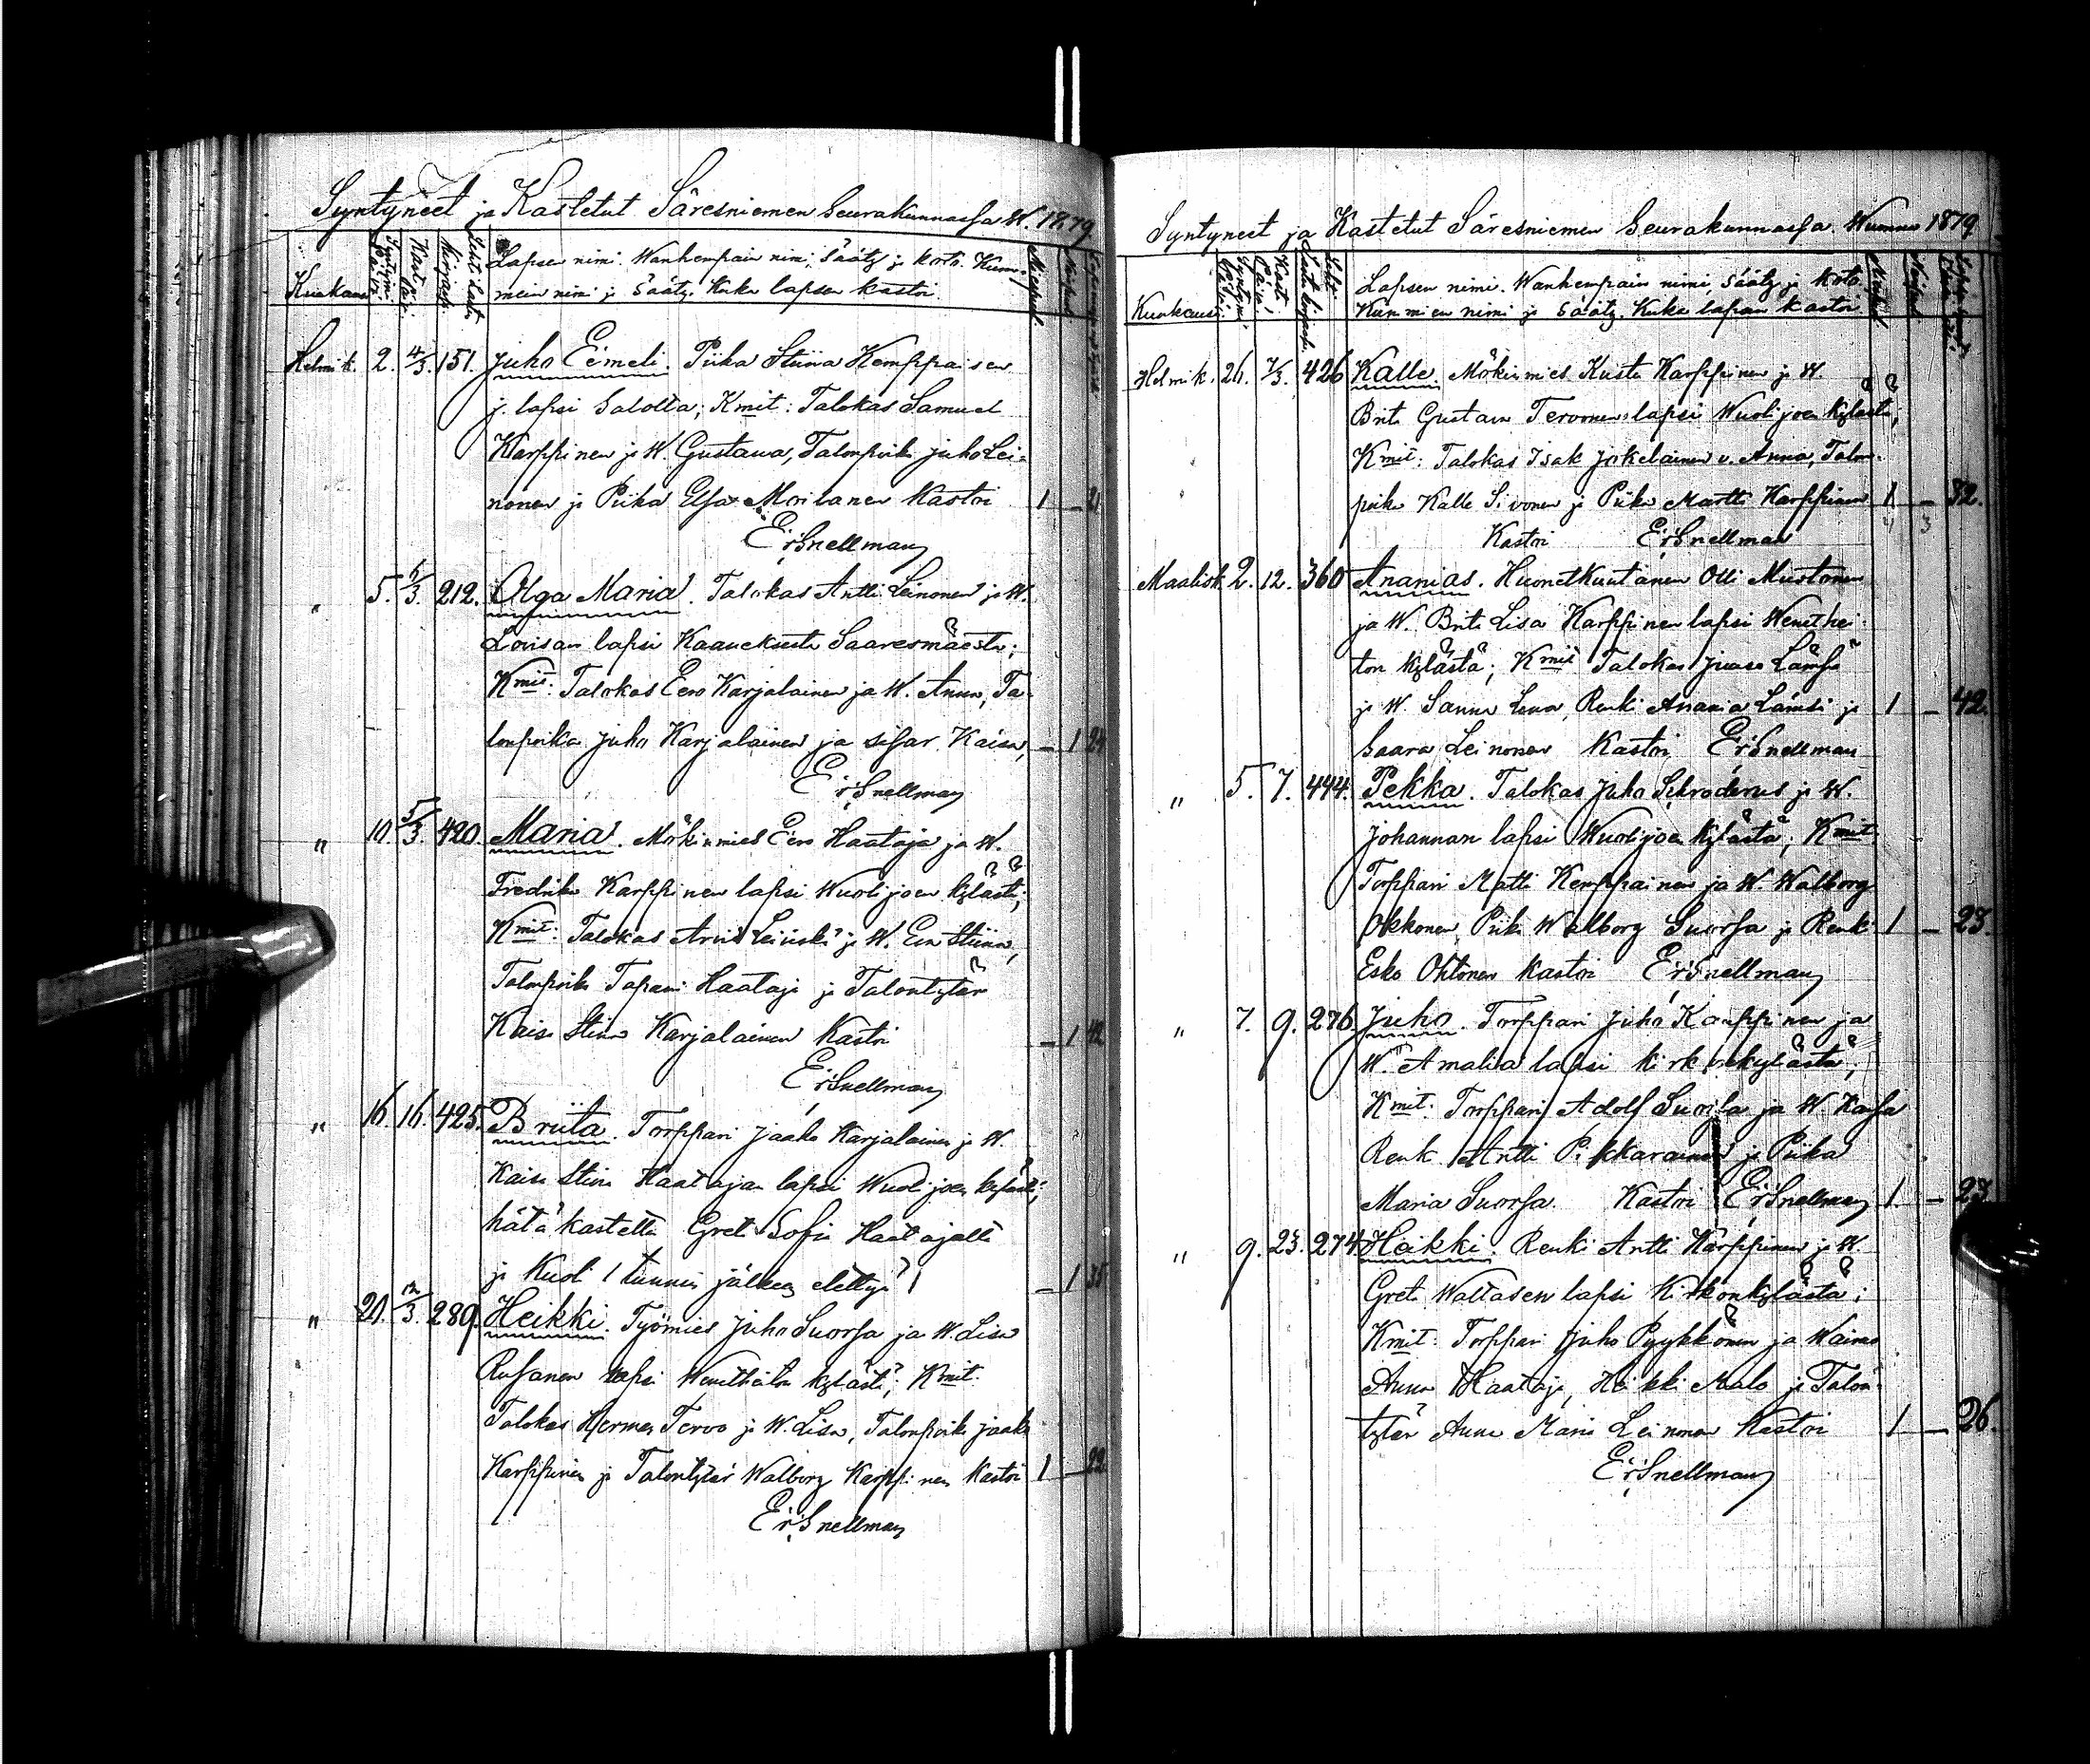 Syntyneet ja Kastetut Säresniemen Seurakunnassa W. 1879
Kuukausi
Syntymä Päivä
Kast. Päi.
Lapsen nimi. Wanhempain nimi, Sääty ja koto. Kum-
mein nimi ja Sääty. Kuka lapsen kastoi.
Miespuol.
Helmik. 2. 4/3. 151. Juho Eemeli. Piika Stiina Kemppaisen
j. lapsi Salolta; Kmit: Talokas Samuel
Karppinen ja W. Gustawa, Talonpoika Juho Lei-
nonen ja Piika Elsa Moilanen Kastoi 1 – 21
E:r Snellman
„ 5. 6/3. 212. Olga Maria. Talokas Antti Leinonen ja W.
Lovisan lapsi Kaaueksesta Saaresmäestä;
Kmit: Talokas Eero Karjalainen ja W. Anna, Ta-
lonpoika Juho Karjalainen ja sisar Kaisa, – 1 24
E:r Snellman
„ 10. 5/3. 420. Maria. Mökinmies Eero Haataja ja W.
Fredrika Karppinen lapsi Wuolijoen kylästä;
Kmit: Talokas Leiviskä ja W. Eva Stiina,
Talonpoika Tapani Haataja ja Talontytär
Kaisa Stina Karjalainen Kastoi – 1 42
E:r Snellman
„ 16. 16. 425. Briita. Torppari Jaako Karjalainen ja W.
Kaisa Stina Haatajan lapsi Wuolijoen kylästä;
hätä kastettu Greta Sofia Haatajalta
ja Kuoli 1 tunnin jälkeen elettyä – 1 35
„ 20. 12/3. 289. Heikki. Työmies Juho Suorsa ja W. Lisa
Rusanen lapsi Wenetheiton kylästä; Kmit:
Talokas Herman Tervo ja W. Lisa, Talonpoika Jaako
Karppinen ja Talontytär Walborg Karppinen Kastoi 1 – 22
E:r Snellman
Syntyneet ja Kastetut Säresniemen Seurakunnassa Wuonna 1879
Kuukausi.
Lapsen nimi. Wanhempain nimi, Sääty ja koto.
Kummien nimi ja Sääty. Kuka lapsen kastoi
Helmik. 26. 7/3. 426 Kalle. Mökinmies Kusta Karppinen ja W.
Brita Gustava Tervonen lapsi Wuolijoen kylästä;
Kmit: Talokas Isak Jokelainen v. Anna, Talon-
poika Kalle Sivonen ja Piika Martta Karppinen 1 – 32.
Kastoi E:r Snellman
Maalisk. 2. 12. 360 Ananias. Huonetkuntainen Olli Mustonen
ja W. Brita Lisa Karppinen lapsi Wenethei-
ton kylästä; Kmit Talokas Juaso Lämsä
ja W. Sanna Lena, Renki Anania Lämsä ja 1 – 42.
Saara Leinonen Kastoi E:r Snellman
„ 5. 7. 444. Pekka. Talokas Juho Schroderus ja W.
Johannan lapsi Wuolijoen kylästä; Kmit
Torppari Matti Kemppainen ja W. Walborg
Okkonen, Piika Walborg Suorsa ja Renki 1 – 23.
Esko Ohtonen Kastoi E:r Snellman
„ 7. 9. 276. Juho. Torppari Juho Karppinen ja
W. Amalia lapsi kirkonkylästä;
Kmit: Torppari Adolf Suorsa ja W. Kaisa
Renk Antti Pikkarainen ja Piika
Maria Suorsa. Kastoi E:r Snellman 1. – 23
„ 9. 23. 274. Heikki. Renki Antti Karppinen ja W.
Greta Waltasen lapsi Kirkonkylästä;
Kmit: Torppari Juho Pyykkönen ja Waimo
Anna Haataja, Heikki Malo ja Talon-
tytär Anna Maria Leinonen Kastoi 1 – 26.
E:r Snellman